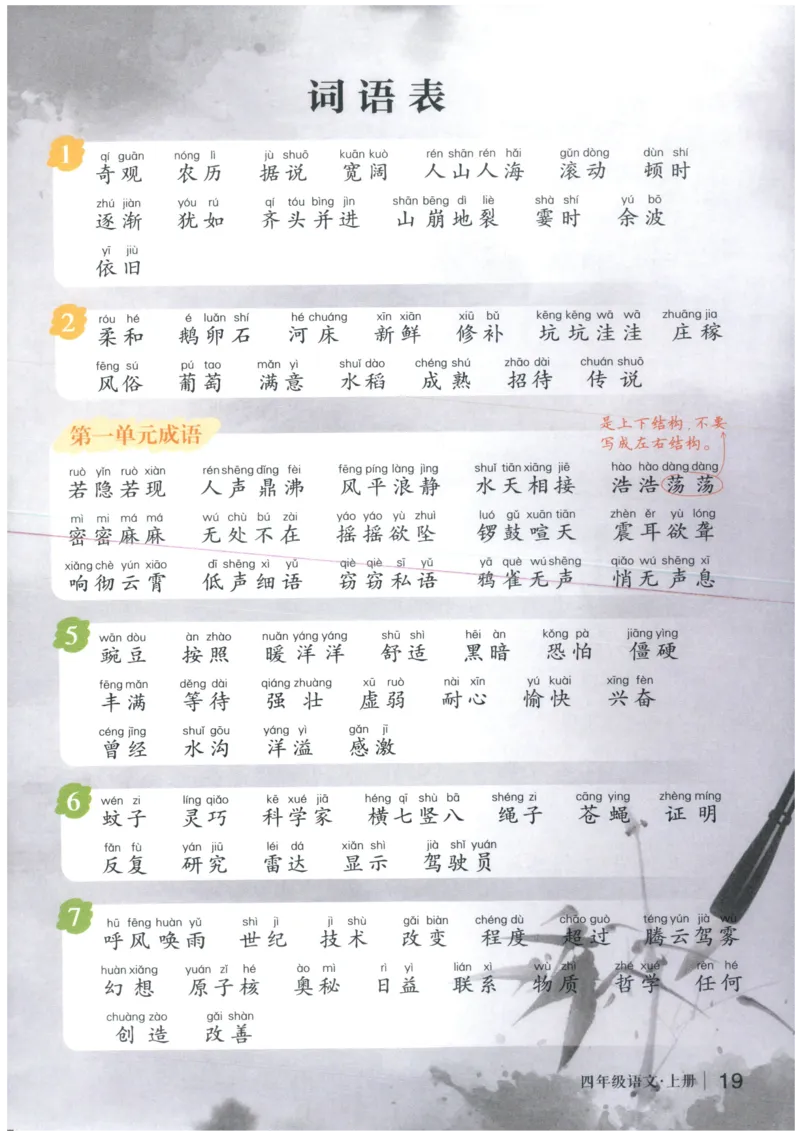 词语表
1
qí guān nóng lì jù shuō kuān kuò rén shān rén hǎi gǔn dòng dùn shí
奇观 农历 据说 宽阔 人山人海 滚动 顿时
zhú jiàn yóu rú qí tóu bìng jìn shān bēng dì liè shà shí yú bō
逐渐 犹如 齐头并进 山崩地裂 霎时 余波
yī jiù
依旧
2
róu hé é luǎn shí hé chuáng xīn xiān xiū bǔ kēng kēng wā wā zhuāng jia
柔和 鹅卵石 河床 新鲜 修补 坑坑洼洼 庄稼
fēng sú pú tao mǎn yì shuǐ dào chéng shú zhāo dài chuán shuō
风俗 葡萄 满意 水稻 成熟 招待 传说
第一单元成语
是上下结构,不要
写成左右结构。
ruò yǐn ruò xiàn rén shēng dǐng fèi fēng píng làng jìng shuǐ tiān xiāng jiē hào hào dàng dàng
若隐若现 人声鼎沸 风平浪静 水天相接 浩浩荡荡
mì mì má má wú chù bú zài yáo yáo yù zhuì luó gǔ xuān tiān zhèn ěr yù lóng
密密麻麻 无处不在 摇摇欲坠 锣鼓喧天 震耳欲聋
xiǎng chè yún xiāo dī shēng xì yǔ qiè qiè sī yǔ yā què wú shēng qiǎo wú shēng xī
响彻云霄 低声细语 窃窃私语 鸦雀无声 悄无声息
5
wān dòu àn zhào nuǎn yáng yáng shū shì hēi àn kǒng pà jiāng yìng
豌豆 按照 暖洋洋 舒适 黑暗 恐怕 僵硬
fēng mǎn děng dài qiáng zhuàng xū ruò nài xīn yú kuài xīng fèn
丰满 等待 强壮 虚弱 耐心 愉快 兴奋
céng jīng shuǐ gōu yáng yì gǎn jī
曾经 水沟 洋溢 感激
6
wén zi líng qiǎo kē xué jiā héng qī shù bā shéng zi cāng ying zhèng míng
蚊子 灵巧 科学家 横七竖八 绳子 苍蝇 证明
fǎn fù yán jiū léi dá xiǎn shì jià shǐ yuán
反复 研究 雷达 显示 驾驶员
7
hū fēng huàn yǔ shì jì jì shù gǎi biàn chéng dù chāo guò téng yún jià wù
呼风唤雨 世纪 技术 改变 程度 超过 腾云驾雾
huàn xiǎng yuán zǐ hé ào mì rì yì lián xì wù zhì zhé xué rèn hé
幻想 原子核 奥秘 日益 联系 物质 哲学 任何
chuàng zào gǎi shàn
创造 改善
四年级语文·上册 19